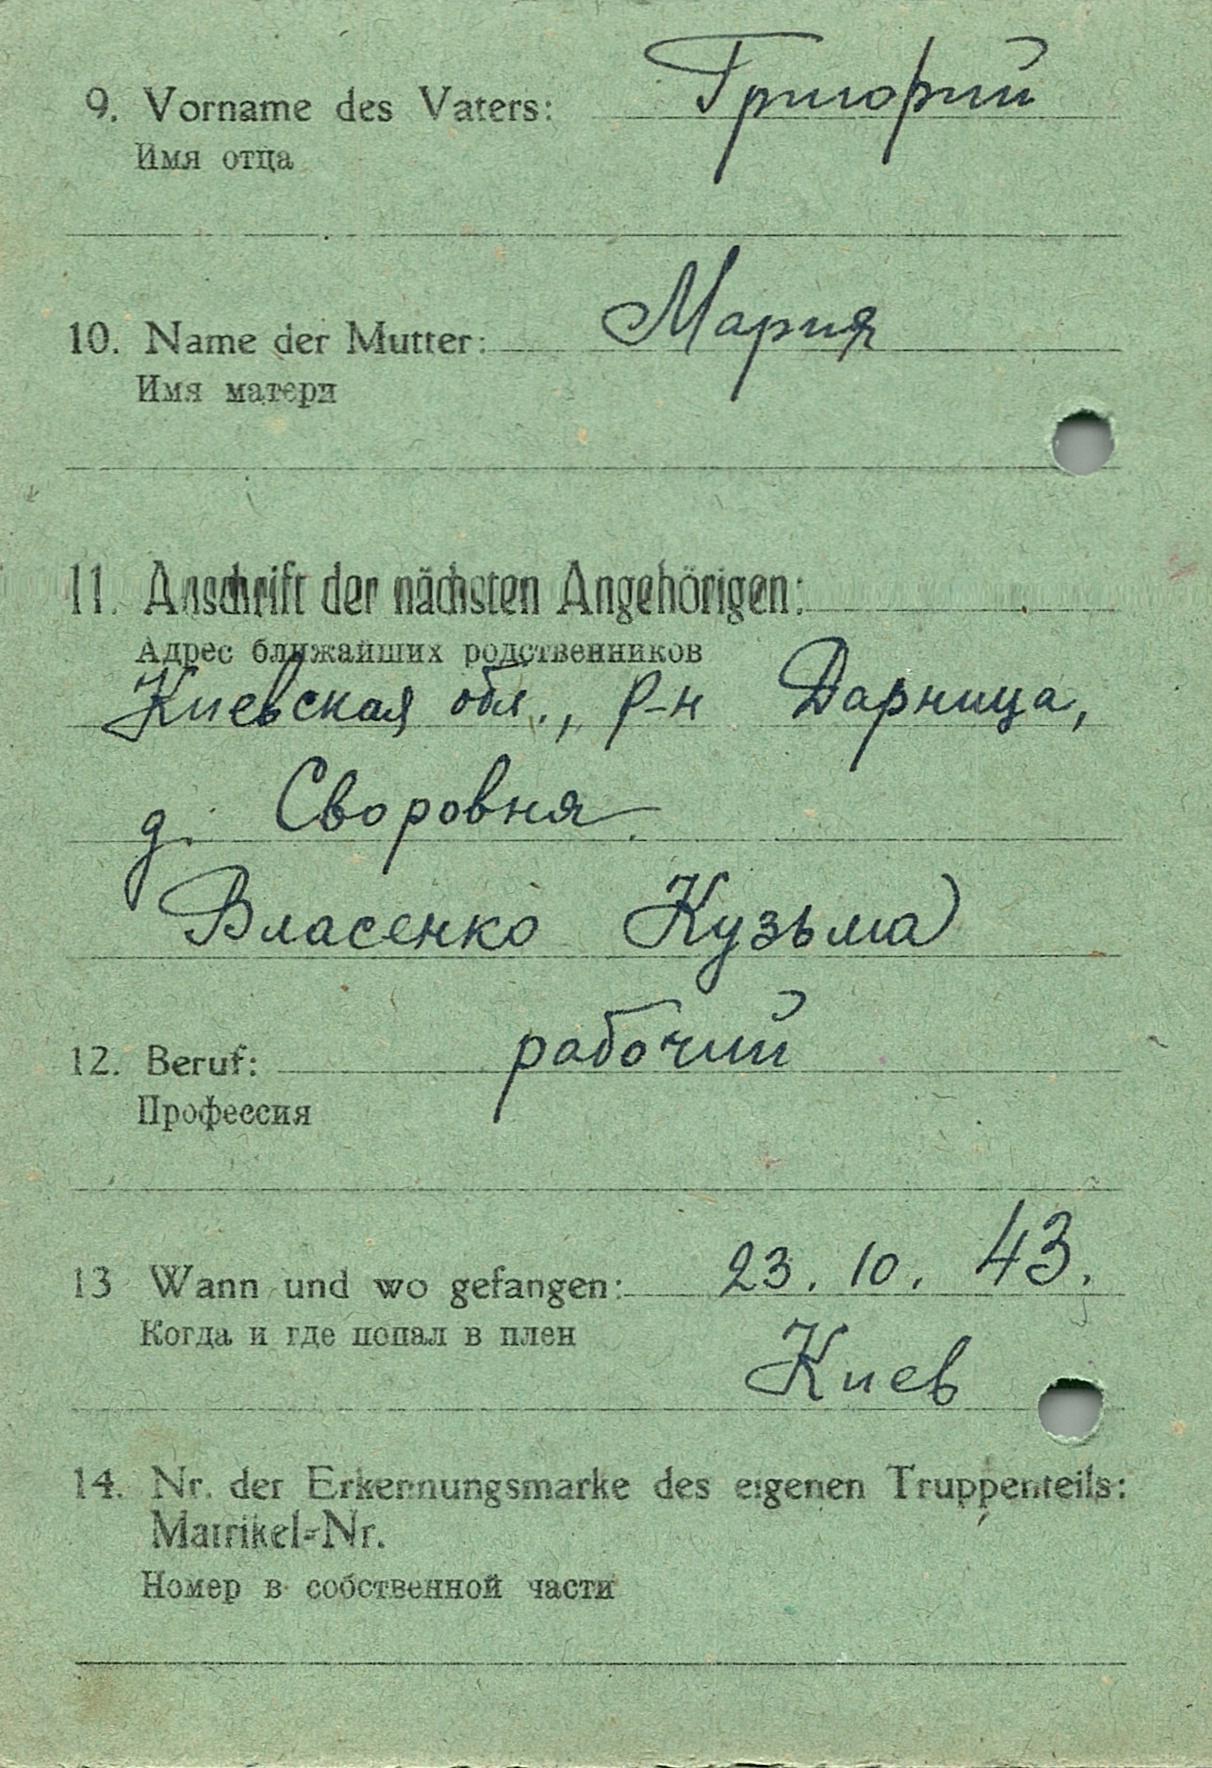 9. Vorname des Vaters: Григорий
Имя отца
10. Name der Mutter: Мария
Имя матери
11. Anschrift der nächsten Angehörigen:
Адрес ближайших родственников
Киевская обл., р-н Дарница,
д. Своровня.
Власенко Кузьма
12. Beruf: рабочий
Профессия
13 Wann und wo gefangen: 23. 10. 43.
Когда и где попал в плен
Киев
14. Nr. der Erkennungsmarke des eigenen Truppenteils:
Matrikel=Nr.
Номер в собственной части